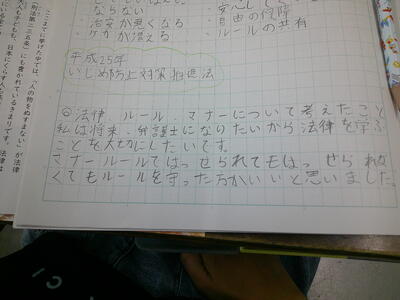 ならない
・治安が悪くなる
・ケガが増える
・安心して
・自由の保障
・ルールの共有
平成25年
いじめ防止対策推進法
◎法律、ルール、マナーについて考えたこと
私は将来、弁護士になりたいから法律を学ぶ
ことを大切にしたいです。
マナールールてはっせられてもはっせられな
くてもルールを守った方がいいと思いました。
ここまでにあげた中では、「人の物をぬすまない」が法律
「刑法第二三五条」にも書かれているきまりです。
大人も子どもも、日本にくらす人
法律は